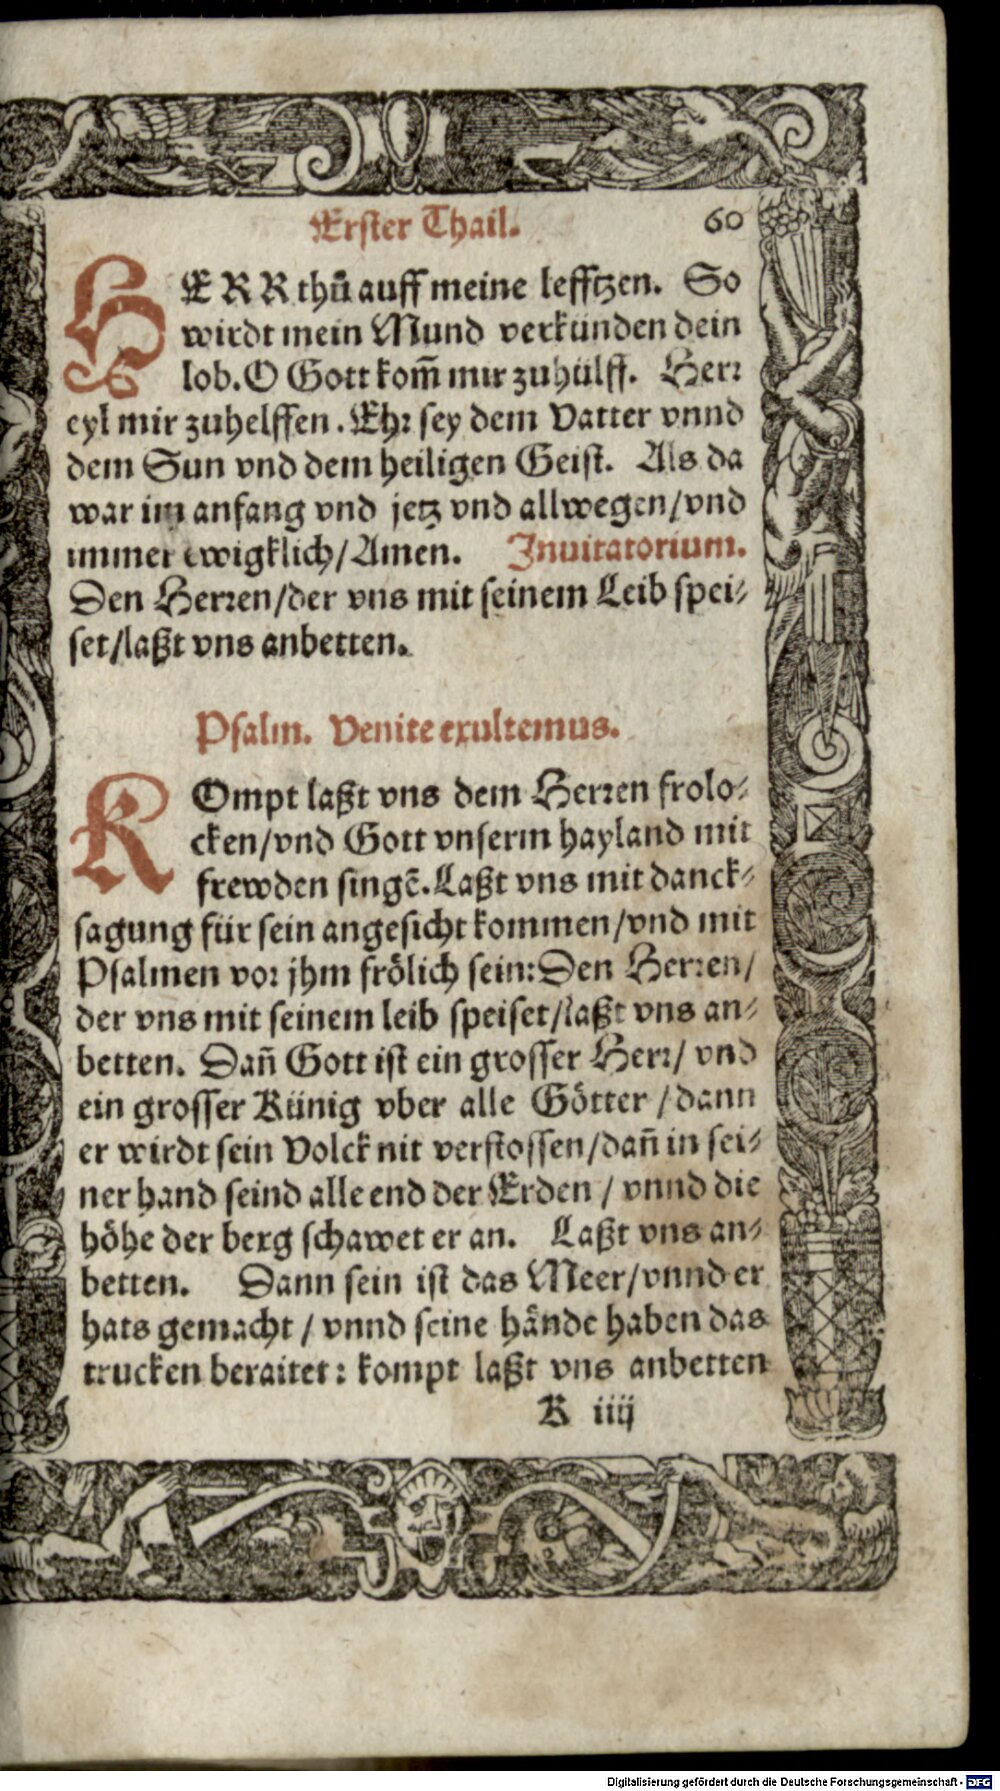 Erster Thail. 60
HERR thů auff meine lefftzen. So
wirdt mein Mund verkünden dein
lob. O Gott kom̃ mir zuhülff. Herr
eyl mir zuhelffen. Ehr sey dem Vatter vnnd
dem Sun vnd dem heiligen Geist. Als da
war im anfang vnd jetz vnd allwegen/vnd
immer ewigklich/Amen. Inuitatorium.
Den Herren/der vns mit seinem Leib spei-
set/laßt vns anbetten.
Psalm. Venite exultemus.
KOmpt laßt vns dem Herren frolo-
cken/vnd Gott vnserm hayland mit
frewden singẽ. Laßt vns mit danck-
sagung für sein angesicht kommen/vnd mit
Psalmen vor jhm frölich sein: Den Herren/
der vns mit seinem leib speiset/laßt vns an-
betten. Dañ Gott ist ein grosser Herr/ vnd
ein grosser Künig vber alle Götter / dann
er wirdt sein Volck nit verstossen/dañ in sei-
ner hand seind alle end der Erden / vnnd die
höhe der berg schawet er an. Laßt vns an-
betten. Dann sein ist das Meer/vnnd er
hats gemacht / vnnd seine hände haben das
trucken beraitet: kompt laßt vns anbetten
K iiij
Digitalisierung gefördert durch die Deutsche Forschungsgemeinschaft - DFG